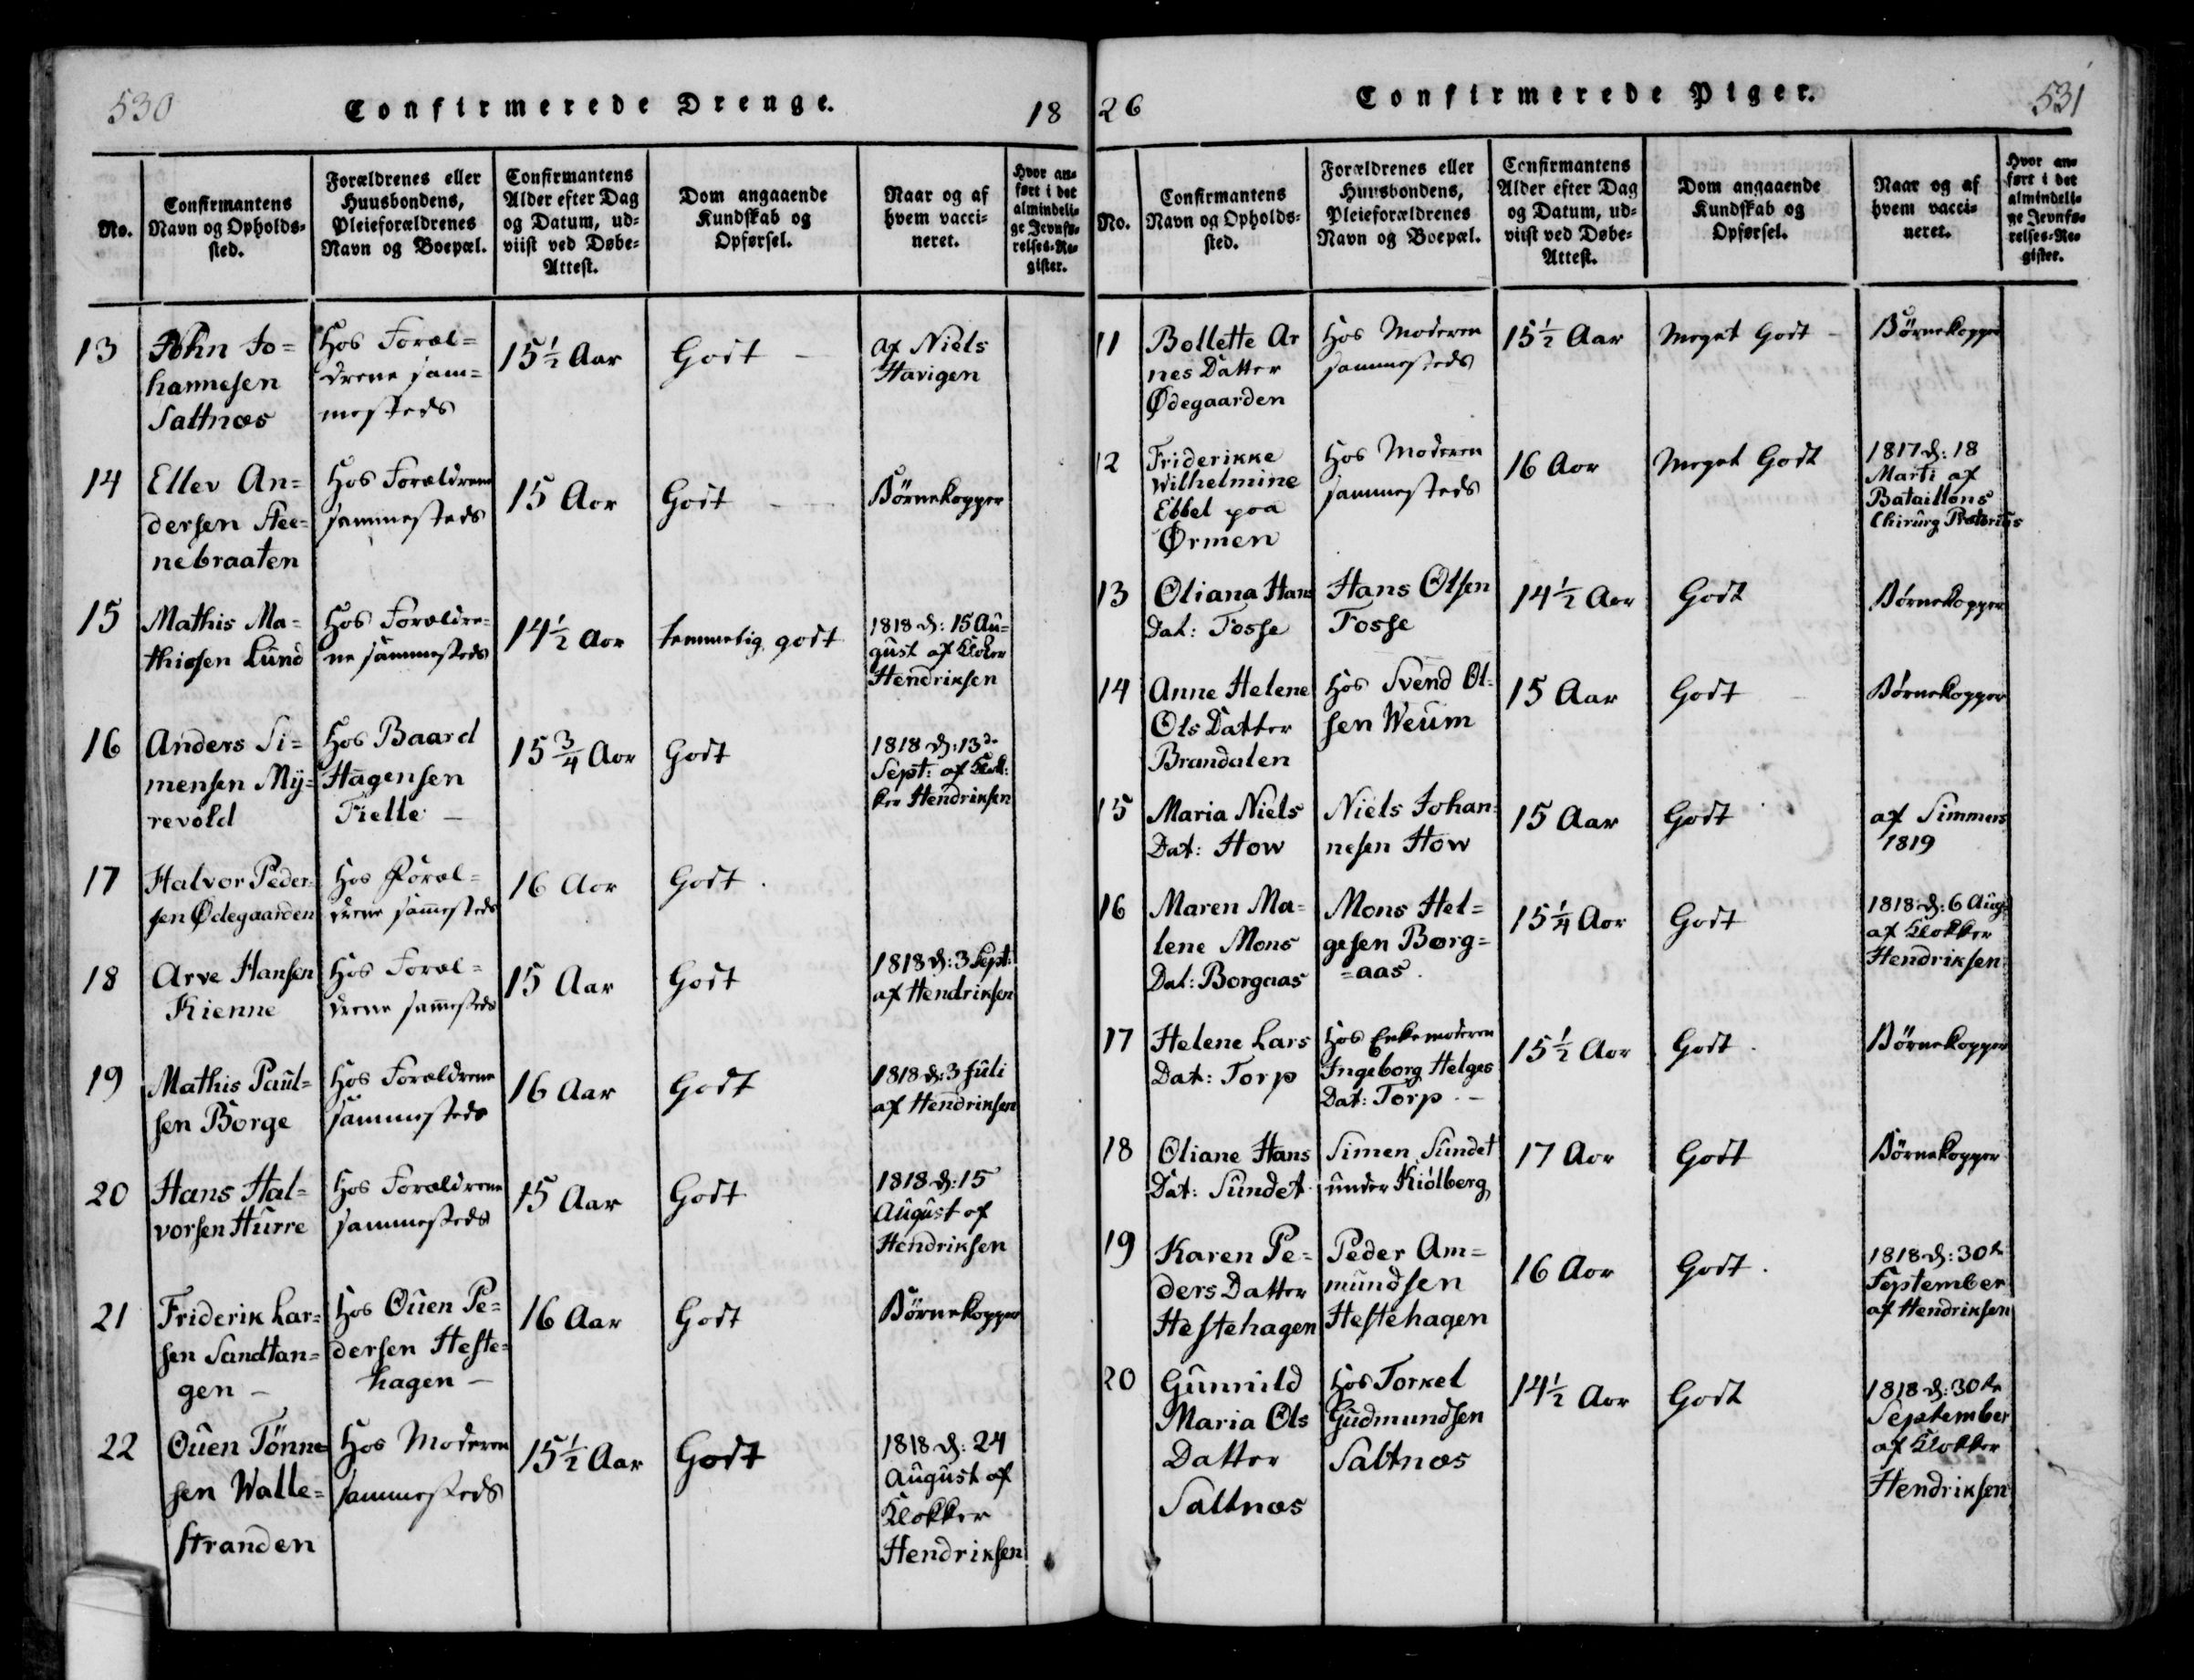 530
Confirmerede Drenge.
18
No.
Confirmantens
Navn og Opholds-
sted.
Forældrenes eller
Huusbondens,
Pleieforældrenes
Navn og Boepæl.
Confirmantens
Alder efter Dag
og Datum, ud-
viist ved Døbe-
Attest.
Dom angaaende
Kundskab og
Opførsel.
Naar og af
hvem vacci-
neret.
Hvor an-
ført i det
almindeli-
ge Jevnfø-
relses-Re-
gister.
13
John Jo=
hannesen
Saltnæs
Hos Foræl=
drene sam=
mesteds
15 1/2 Aar
Godt -
af Niels
Havigen
14
Ellev An=
dersen Stee=
nebraaten
Hos Forældrene
sammesteds
15 Aar
Godt
Børnekopper
15
Mathis Ma=
thiesen Lund
Hos Forældre=
ne sammesteds
14 1/2 Aar
temmelig godt
1818 d: 15 Au=
gust af Klokker
Hendriksen
16
Anders Si=
mensen My=
revold
Hos Baard
Hagensen
Fielle -
15 3/4 Aar
Godt
1818 d: 13de
Sept: af Klok=
ker Hendriksen
17
Halvor Peder=
sen Ødegaarden
Hos Foræl=
drene sam̄esteds
16 Aar
Godt .
18
Arve Hansen
Kienne
Hos Foræl=
drene sam̄esteds
15 Aar
Godt
1818 d: 3 Sept:
af Hendriksen
19
Mathis Paul=
sen Borge
Hos Forældrene
sammesteds
16 Aar
Godt
1818 d: 3 Juli
af Hendriksen
20
Hans Hal=
vorsen Hurre
Hos Forældrene
sammesteds
15 Aar
Godt
1818 d: 15
August af
Hendriksen
21
Friderik Lar=
sen Sandtan=
gen -
Hos Ouen Pe=
dersen Heste=
hagen -
16 Aar
Godt
Børnekopper
22
Ouen Tønne
sen Walle=
stranden
Hos Moderen
sammesteds
15 1/2 Aar
Godt
1818 d: 24
August af
Klokker
Hendriksen
26
Confirmerede Piger.
531
No.
Confirmantens
Navn og Opholds-
sted.
Forældrenes eller
Huusbondens,
Pleieforældrenes
Navn og Boepæl.
Confirmantens
Alder efter Dag
og Datum, ud-
viist ved Døbe-
Attest.
Dom angaaende
Kundskab og
Opførsel.
Naar og af
hvem vacci-
neret.
Hvor an-
ført i det
almindeli-
ge Jevnfø-
relses-Re-
gister.
11
Bollette Ar
nes Datter
Ødegaarden
Hos Moderen
sammesteds
15 1/2 Aar
Meget Godt -
Børnekopper
12
Friderikke
Wilhelmine
Ebbel paa
Ørmen
Hos Moderen
sammesteds
16 Aar
Meget Godt
1817 d: 18
Marti af
Bataillons
Chirurg
13
Oliana Hans
Dat: Fosse
Hans Olsen
Fosse
14 1/2 Aar
Godt
Børnekopper
14
Anne Helene
Ols Datter
Brandalen
Hos Svend Ol=
sen Weum
15 Aar
Godt -
Børnekopper
15
Maria Niels
Dat: How
Niels Johan=
nesen How
15 Aar
Godt
af Simmers
1819
16
Maren Ma=
lene Mons
Dat: Borgaas
Mons Hel=
gesen Børg=
=aas.
15 1/4 Aar
Godt
1818 d: 6 Aug:
af Klokker
Hendriksen
17
Helene Lars
Dat: Torp
Hos Enkemoderen
Ingeborg Helges
Dat: Torp. -
15 1/2 Aar
Godt .
Børnekopper
18
Oliane Hans
Dat: Sundet
Simen Sundet
under Kiølberg
17 Aar
Godt
Børnekopper
19
Karen Pe=
ders Datter
Hestehagen
Peder Am=
mundsen
Hestehagen
16 Aar
Godt .
1818 d: 30te
September
af Hendriksen
20
Gunnild
Maria Ols
Datter
Saltnæs
Hos Torkel
Gudmundsen
Saltnæs
14 1/2 Aar
Godt
1818 d: 30te
September
af Klokker
Hendriksen